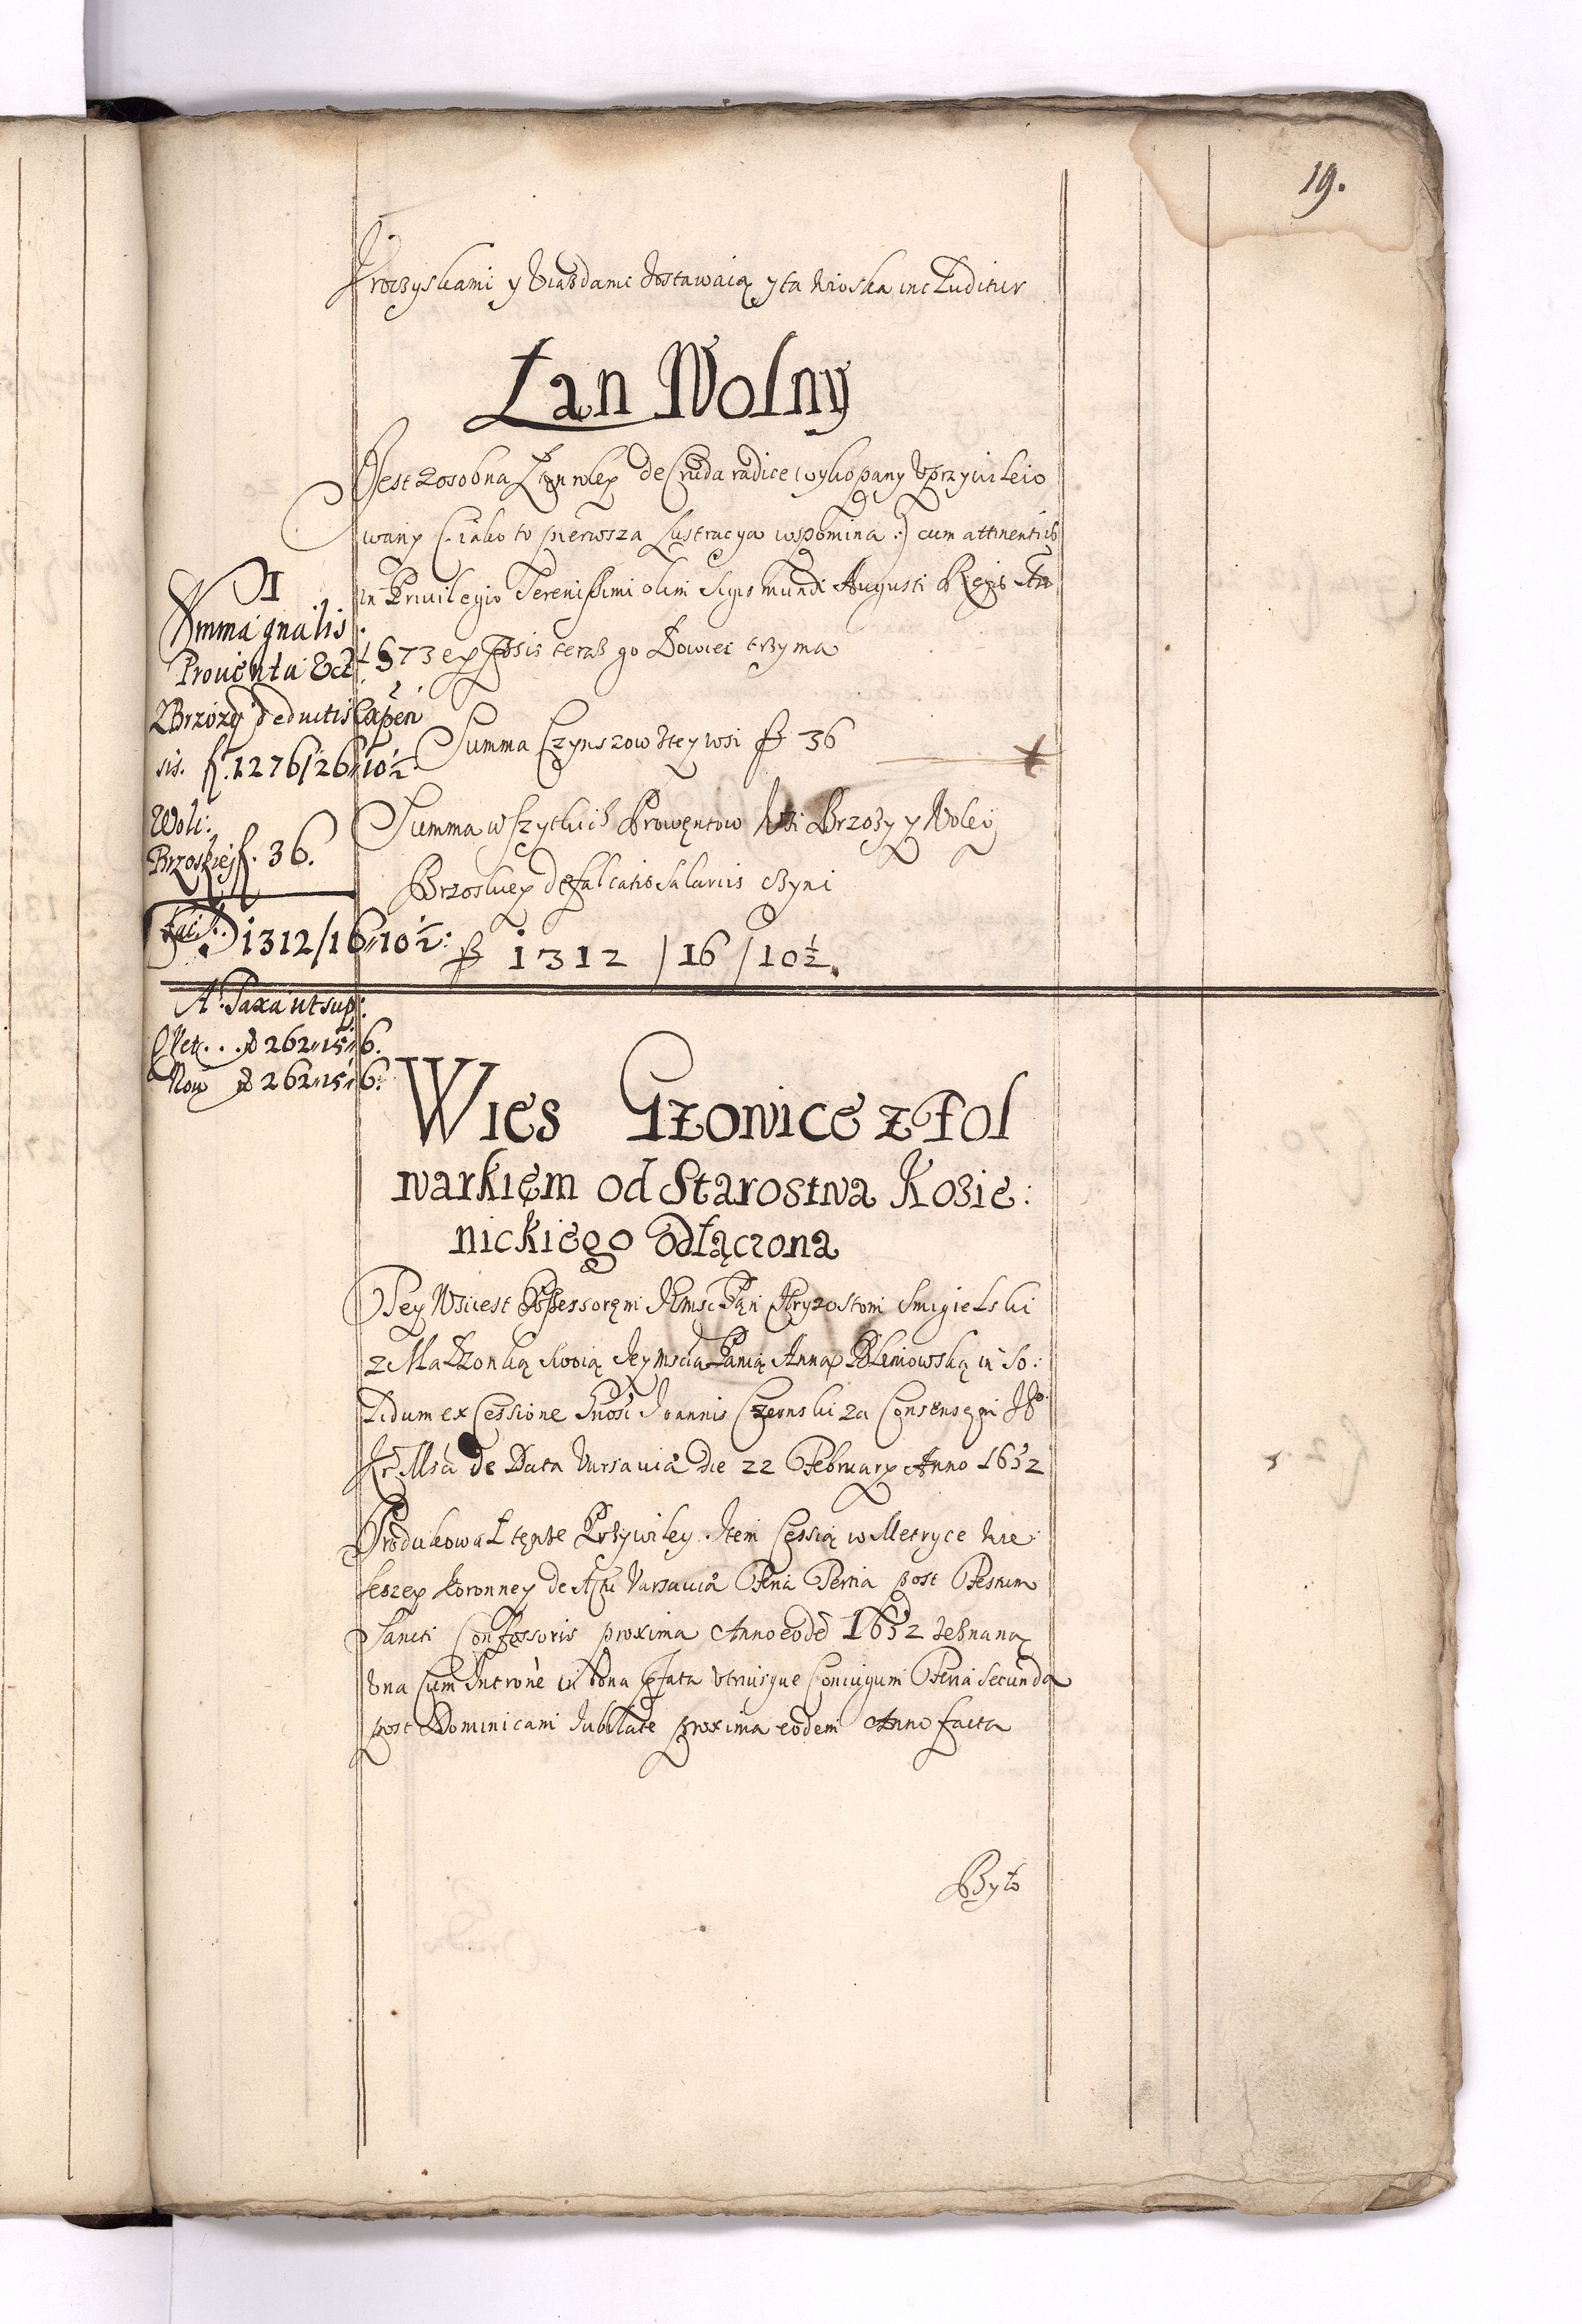 19.
Uroczyskami y Uiazdami dostawaią y ta Wioska includitur
Łan Wolny
Jest zosobna Łan roley de Cruda radice wykopany Uprzywileio
wany (: iako to pierwsza Lustracya wspomina :) cum attinentiis
in Privilegio Serenissimi olim Sigismundi Augusti Regis An
1573 teraz go Dowiei trzyma
Summa Czynszow tey wsi fl 36
Summa wszytkich Prowentow Wsi Brzozy y Woley
Brzoskiey defalcatis Salariis czyni
fl 1312 / 16 / 10½.
Summa gnalis
Prouentu Ect.
z Brzozy deductis Expen
sis. f. 1276/26//10½
Woli:
Brzoskiej f. 36.
facit. 1312/16//10½:
A Taxa ut sup:
Vet... fl 262//15//6.
Now fl 262//15//6:
Wies Głowice z Fol
warkięm od Starostwa Kozie:
nickiego odłączona
Tey Wsi iest Possessoręm Jmsc Pan Chryzostom Smigielski
z Małzonką swoią Jeymscia Panią Anną in So:
lidum ex Cessione Gnosi Joannis Czernski za Consensęm J°
Kr Msci de Data Varsaviæ die 22 February Anno 1652
Produkował tęnze Przywiley. Item Cessią w Metryce Wie:
kszey Koronney de Actu Varsaviæ Feria Tertia post Festum
Sancti Confessoris proxima Anno eodē 1652 zeznaną
Una Cum Intrōne in bona pfata utriusque Coniugum Feria Secunda
post Dominicam Jubilate proxima eodem Anno facta
Było